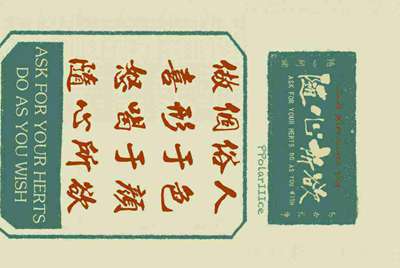 做個俗人
喜形于色
于顏
隨心所欲
ASK FOR YOUR HERTS
DO AS YOU WISH
PPolarIIIce
隨心所欲
ASK FOR YOUR HERTS DO AS YOU WISH